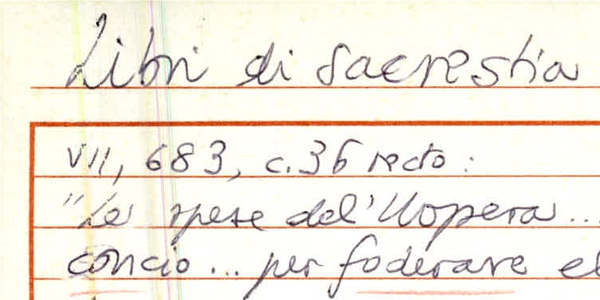 Libri di Sacrestia
VII, 683, c.36 recto:
"Le spese del'Uopera...
concio... per foderare el